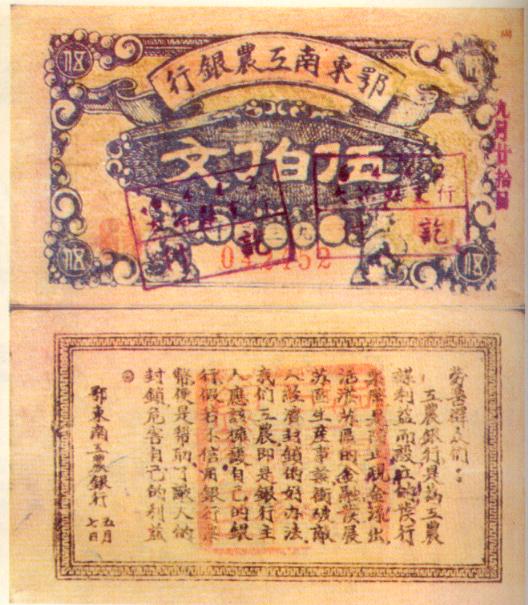 鄂東南工農銀行
伍佰文
伍
伍
伍
訖
訖
勞苦群众們:
工農銀行是為工農
謀利益而設立的發行
票幣是防止現金流出
活濟苏區的金融發展
苏區生產事業衝破敵
人經濟封鎖的好办法
我們工農即是銀行主
人應該擁護自己的銀
行假若不信用銀行票
幣便是幫助了敵人的
封鎖危害自己的利益
鄂東南工農銀行
五月
七日